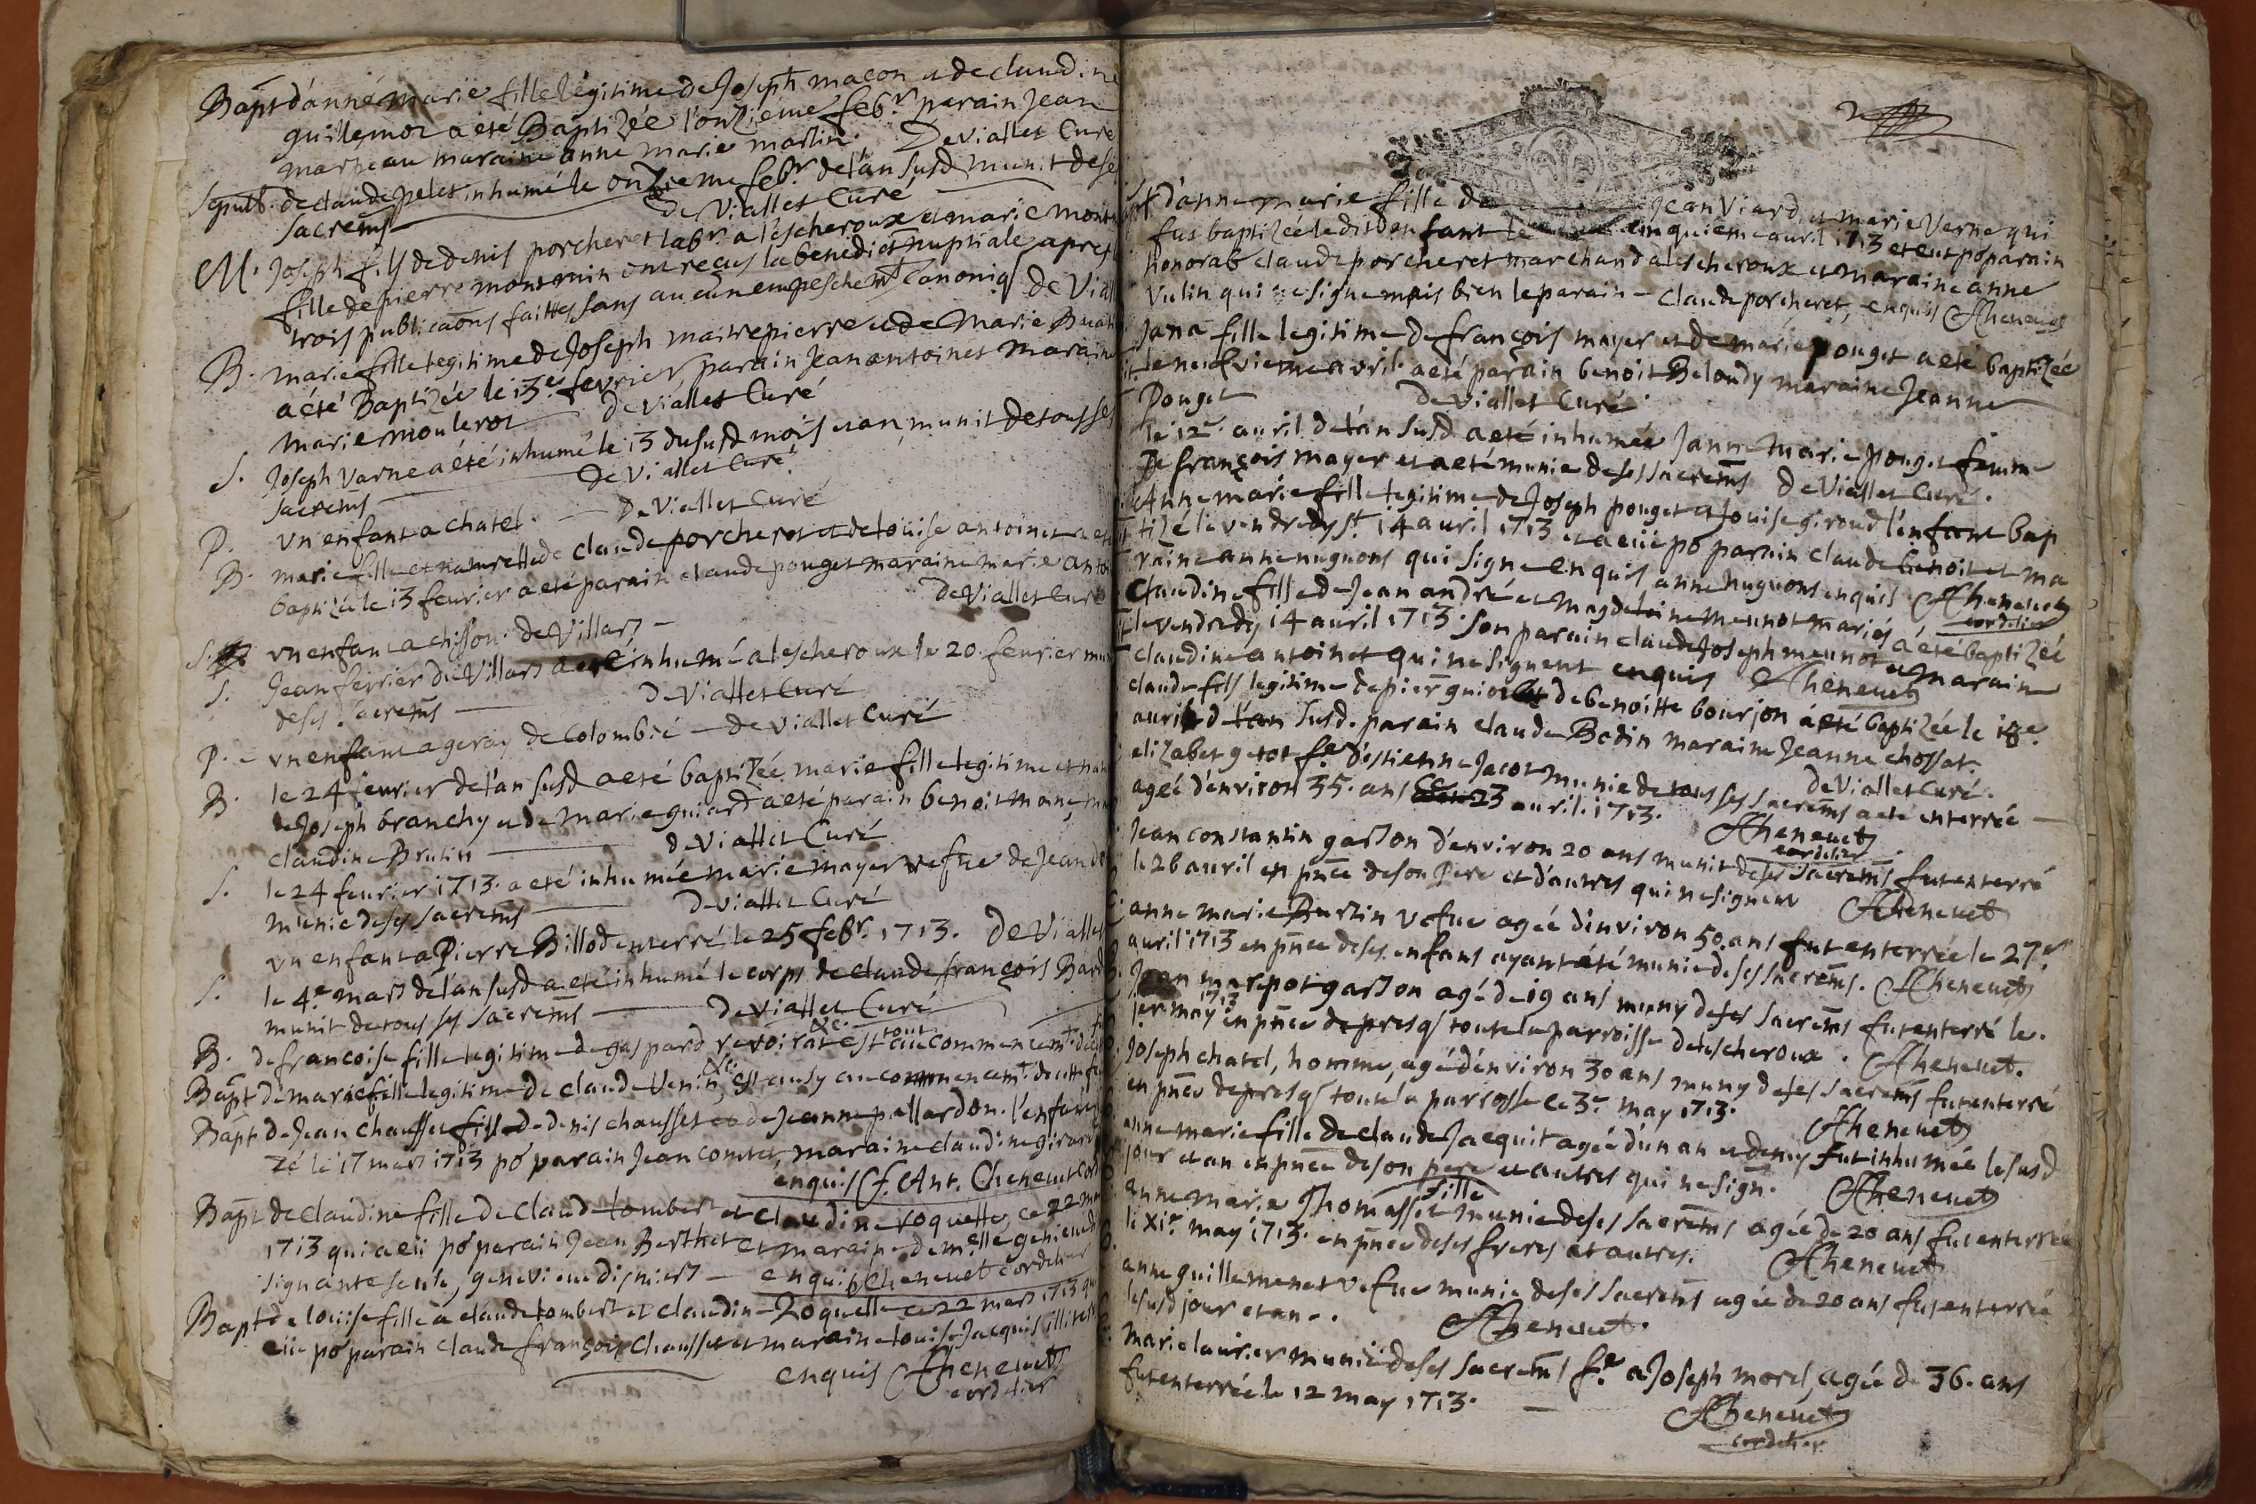 Bapt d'anne marie fille legitime de Joseph macon et de claudine
guillemot a eté Baptizée l'onzieme febr. parain Jean
marpeau maraine anne marie martin De Viallet Curé
Sepult. de claude pelet inhumé le onzieme febr. de l'an susd munit de se
sacrems De Viallet Curé
M. Joseph fils de denis porcheret labr. a lescheroux et marie mont
fille de pierre montmin ont reçus la benedict nuptiale apres
trois publicaons faittes sans aucun empeschemt canoniq De Vial
B. marie fille legitime de Joseph maitrepierre et de Marie Buat
a eté Baptizée le 13e. fevrier parain Jean antoinet maraine
marie mouleros de Viallet Curé
S. Joseph Varne a eté inhumé le 13 du susd mois et an, munit de tous ses
sacrems De Viallet Curé
P. Vn enfant a chatel. De Viallet Curé
B. marie fille et naturelle de claude porcheret et de louise antoinet a eté
baptizée le 13 feurier a eté parain claude pouget maraine marie antoi
De Viallet Curé
S. vn enfant a chisson de Villars
S. Jean ferrier de Villars a eté inhumé a lescheroux le 20. feurier mun
de ses sacrems De Viallet Curé
P. vn enfant a geray de Colombié De Viallet Curé
B. le 24 feurier de l'an susd a eté baptizée, marie fille legitime et nat
de Joseph branchy et de marie guiard a eté parain benoit mone,
claudine Brutin De Viallet Curé
S. le 24 feurier 1713. a eté inhumée marie mayer vefue de Jean
munie de ses sacrems De Viallet Curé
vn enfant a Pierre Billod enterré le 25 febr. 1713. De Viallet
S. le 4e mars de l'an susd a eté inhumé le corps de claude françois Bard
munit de tous ses sacrems De Viallet Curé
B. de francoise fille legitime de gaspard revoirat &c. est tout au commencemt. de
Bapt de marie fille legitime de claude Venin, &c. est ausy au commencemt. de cette f
Bapt de Jean chausset fils de denis chausset et de Jeanne pallardon. l'enfant
zé le 17 mars 1713 po parain Jean comtet, maraine claudine girard
enquis f. Ant. Cheneuet Cor
Bapt de claudine fille de claud tombert et claudine roquette, ce 22 mar
1713 qui a eü po parain Jean Berthet et maraine demelle geneieue
signante seule, geneuieue disnier enquis Cheneuet cordelier
Bapt de loüise fille a claude tombert et claudine Roquette ce 22 mars 1713 qu
eüe po parain claude françois Chausset et maraine louise Jacquis
enquis Cheneuet
cordelier
2
d'anne marie fille de Jean Viard et marie Verne qui
fut baptizée le dit enfant le cinquieme auril 1713 et eut po parain
honorab claude porcheret marchand a lescheroux et maraine anne
Vulin qui ne signe mais bien le parain - Claude porcheret, enquis Cheneuet
Jana fille legitime de françois mayer et de marie pouget a eté baptizée
le neufvieme avril. a eté parain benoit Beloudy maraine Jeanne
Pouget De Viallet Curé
le 12e. auril de l'an susd a eté inhumée Janne Marie pouget femme
De françois mayer et a eté munie de ses sacrems De Viallet Curé.
Anne marie fille legitime de Joseph pouget et Jouise giroud l'enfant bap
tizé le vendredy st 14 auril 1713 et a eüe po parain claude benoit et ma
raine anne nuguons qui signe enquis anne nuguons enquis Cheneuet
cordelier
Claudine fille de Jean andré et magdeleine mennot mariés a eté baptizée
le vendredy 14 auril 1713. son parain claude Joseph mennot et maraine
claudine antoinet qui ne signent enquis Cheneuet
claude fils legitime de pierr guiot et de benoitte bourjon a eté baptizée le 18e.
auril de l'an susd. parain claude Bodin maraine Jeanne chossat.
De Viallet Curé.
elizabet getot fe. d'estienne Jacot munie de tous ses sacrems a eté enterrée
ageé d'environ 35. ans ce 23 auril. 1713. Cheneuet
cordelier
Jean constantin garson d'environ 20 ans munit de ses sacrems fut enterré
le 26 auril en pnce de son Pere et d'autres qui ne signent Cheneuet
anne marie Burtin vefue agée d'environ 50. ans fut enterrée le 27e.
auril 1713 en pnce de ses enfans ayant eté munie de ses sacrems. Cheneuet
Jean marpot garson agé de 19 ans muny de ses sacrems fut enterré le.
1er may 1713 en pnce de presq toute la parroisse de lescheroux. Cheneuet.
Joseph chatel, homme, agé d'environ 30 ans muny de ses sacrems fut enterré
en pnce de presq toute la paroisse ce 3e may 1713. Cheneuet
anne marie fille de claude Jacquit agée d'un an et demy fut inhumée le susd
jour et an en pnce de son pere et autres qui ne sign. Cheneuet
anne marie Thomasset fille munie de ses sacrems agée de 20 ans fut enterrée
le XIe. may 1713. en pnce de ses freres et autres. Cheneuet
anne guillemenet vefue munie de ses sacrems agée de 20 ans fut enterrée
le susd jour et an. Cheneuet.
Marie laurier munie de ses sacrems fe. a Joseph morel, agée de 36. ans
fut enterrée le 12 may 1713. Cheneuet
cordelier